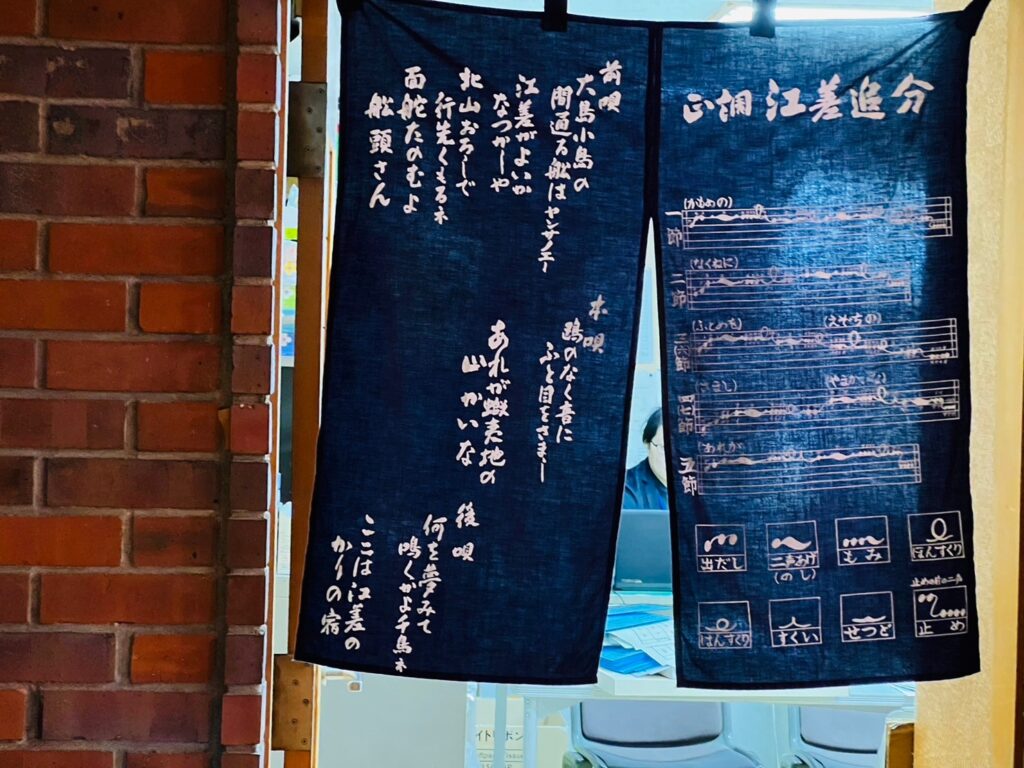 正調 江差追分
一節
(かもめの)
二節
(なくねに)
三六節
(ふとめを) (えぞちの)
四七節
(さまし) (やまかいな)
五節
(あれが)
出だし
二声あげ
(のし)
もみ
ほんすくり
はんすくり
すくい
せつど
止めの前の二声
止め
前唄
大島小島の
間通る船はヤンサノエー
江差がよいか
なつかしや
北山おろしで
行先くもるネ
面舵たのむよ
船頭さん
本唄
鴎のなく音に
ふと目をさまし
あれが蝦夷地の
山かいな
後唄
何を夢みて
鳴くかよ千鳥ネ
ここは江差の
かりの宿